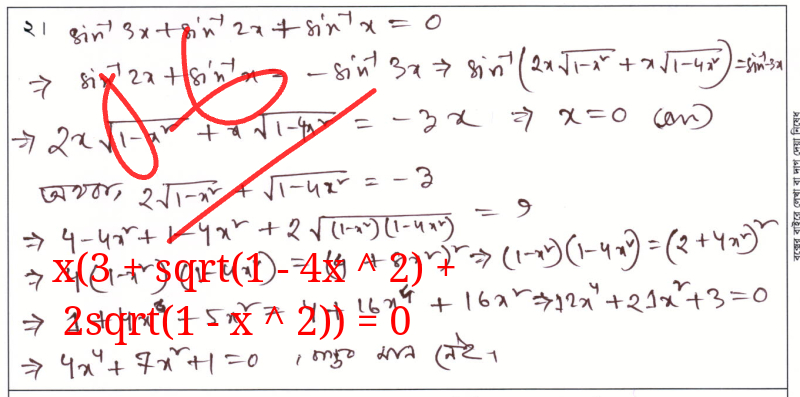 ২। sin⁻¹ 3x + sin⁻¹ 2x + sin⁻¹ x = 0
⇒ sin⁻¹ 2x + sin⁻¹ x = - sin⁻¹ 3x ⇒ sin⁻¹ (2x√(1-x²) + x√(1-4x²)) = sin⁻¹ -3x
⇒ 2x√(1-x²) + x√(1-4x²) = -3x ⇒ x=0 (an)
অথবা, 2√(1-x²) + √(1-4x²) = -3
⇒ 4-4x²+1-4x² + 2√((1-x²)(1-4x²)) = 9
⇒ (1-x²)(1-4x²) = (2+4x²)²
x(3 + sqrt(1 - 4x ^ 2) +
2sqrt(1 - x ^ 2)) = 0
+ 16x⁴ + 16x² ⇒ 12x⁴ + 21x² + 3 = 0
⇒ 4x⁴ + 7x² + 1 = 0 , মান নেই।
বক্সের বাইরে লেখা বা দাগ দেয়া নিষেধ